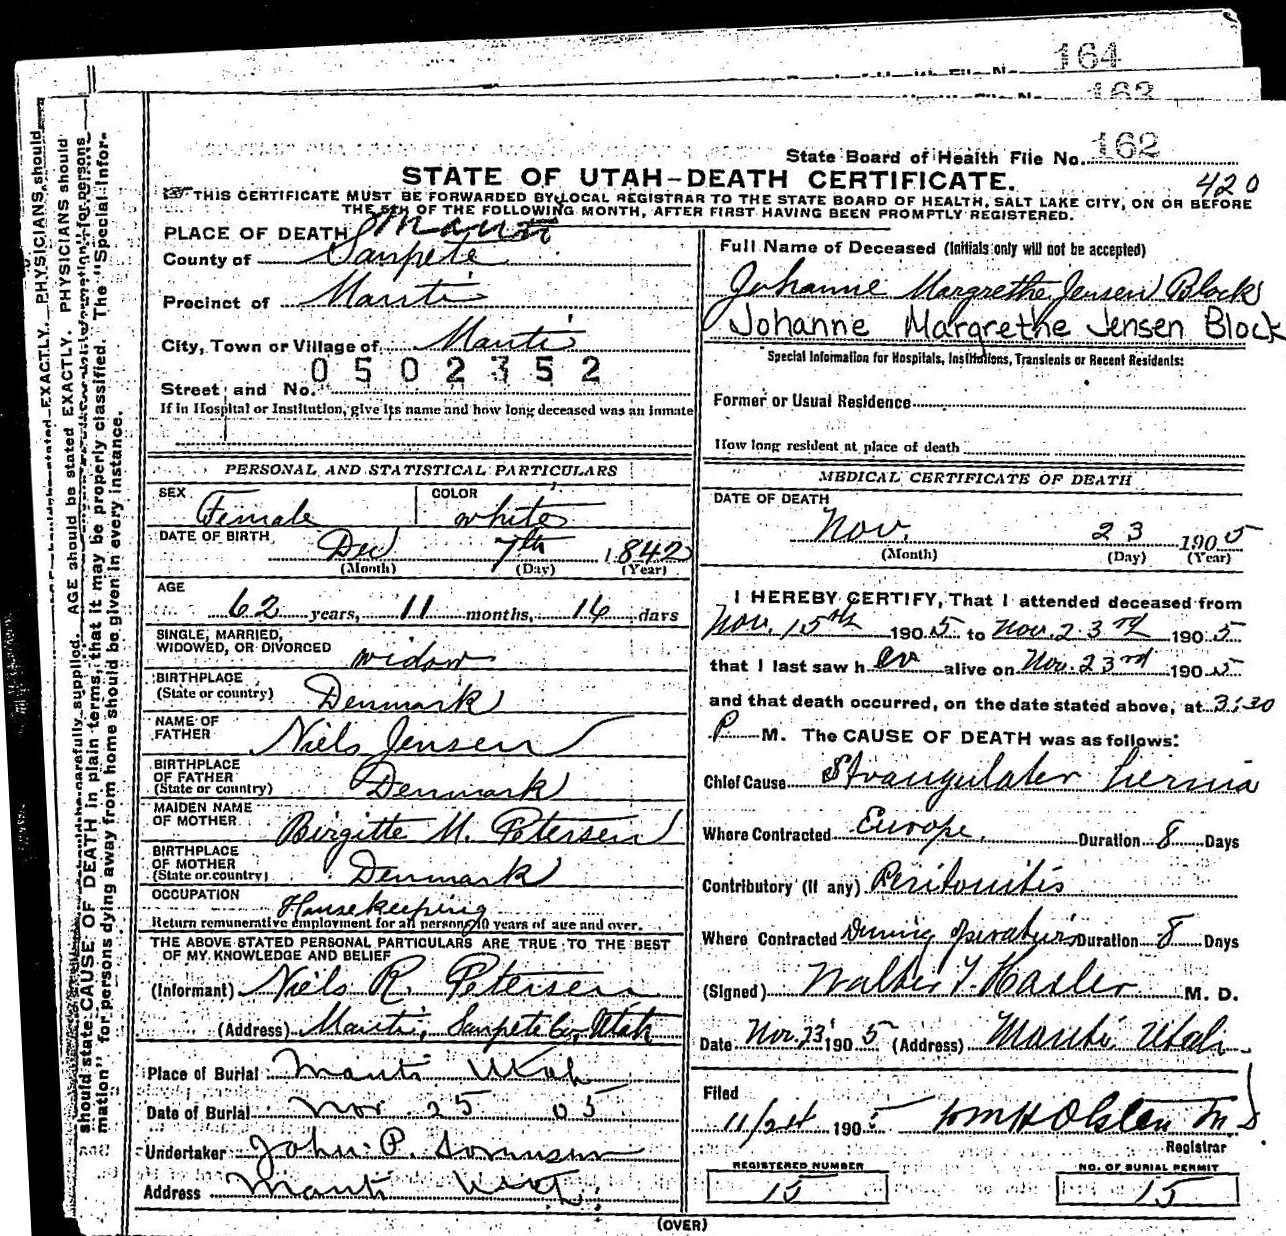 164
163
State Board of Health File No. 162
STATE OF UTAH-DEATH CERTIFICATE.
420
THIS CERTIFICATE MUST BE FORWARDED BY LOCAL REGISTRAR TO THE STATE BOARD OF HEALTH, SALT LAKE CITY, ON OR BEFORE
THE 5TH OF THE FOLLOWING MONTH, AFTER FIRST HAVING BEEN PROMPTLY REGISTERED.
PLACE OF DEATH Manti
County of Sanpete
Precinct of Manti
City, Town or Village of Manti
0502352
Street and No.
If in Hospital or Institution, give its name and how long deceased was an inmate
PERSONAL AND STATISTICAL PARTICULARS
SEX Female COLOR white
DATE OF BIRTH Dec 7th 1842
(Month) (Day) (Year)
AGE
62 years, 11 months, 16 days
SINGLE, MARRIED,
WIDOWED, OR DIVORCED widow
BIRTHPLACE
(State or country) Denmark
NAME OF
FATHER Niels Jensen
BIRTHPLACE
OF FATHER
(State or country) Denmark
MAIDEN NAME
OF MOTHER Birgitte M. Petersen
BIRTHPLACE
OF MOTHER
(State or country) Denmark
OCCUPATION Housekeeping
Return remunerative employment for all persons 10 years of age and over.
THE ABOVE STATED PERSONAL PARTICULARS ARE TRUE TO THE BEST
OF MY KNOWLEDGE AND BELIEF
(Informant) Niels R. Petersen
(Address) Manti, Sanpete Co, Utah
Place of Burial Manti Utah
Date of Burial Nov 25 05
Undertaker John P. Sorensen
Address Manti Utah
Full Name of Deceased (Initials only will not be accepted)
Johanne Margrethe Jensen Block
Johanne Margrethe Jensen Block
Special Information for Hospitals, Institutions, Transients or Recent Residents:
Former or Usual Residence
How long resident at place of death
MEDICAL CERTIFICATE OF DEATH
DATE OF DEATH
Nov. 23 1905
(Month) (Day) (Year)
I HEREBY CERTIFY, That I attended deceased from
Nov. 15th 1905 to Nov. 23rd 1905
that I last saw her alive on Nov. 23rd 1905
and that death occurred, on the date stated above, at 3:30
P M. The CAUSE OF DEATH was as follows:
Chief Cause Strangulater hernia
Where Contracted Europe. Duration 8 Days
Contributory (If any) Peritonitis
Where Contracted During operation Duration 8 Days
(Signed) Walter T. Hasler M. D.
Date Nov. 23 1905 (Address) Manti Utah
Filed
11/24 1905 Wm H Olsten M D
Registrar
REGISTERED NUMBER
15
NO. OF BURIAL PERMIT
15
(OVER)
PHYSICIANS should
AGE should be stated EXACTLY. PHYSICIANS should
should state CAUSE OF DEATH in plain terms, that it may be properly classified. The "Special Infor-
mation" for persons dying away from home should be given in every instance.